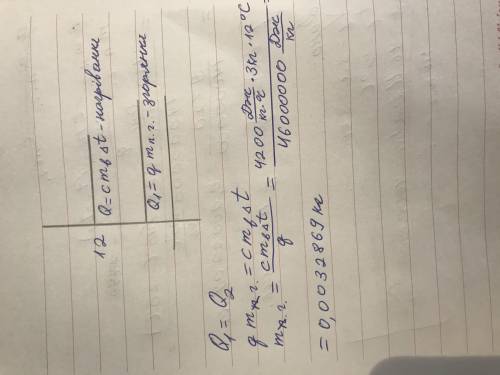 12
Q = cmвΔt - нагрівання
Q1 = q mп.г. - згоряння
Q1 = Q2
q mп.г. = cmвΔt
mп.г. = cmвΔt / q = 4200 Дж/кг·°C · 3кг · 12°C / 46000000 Дж/кг =
= 0,0032869 кг